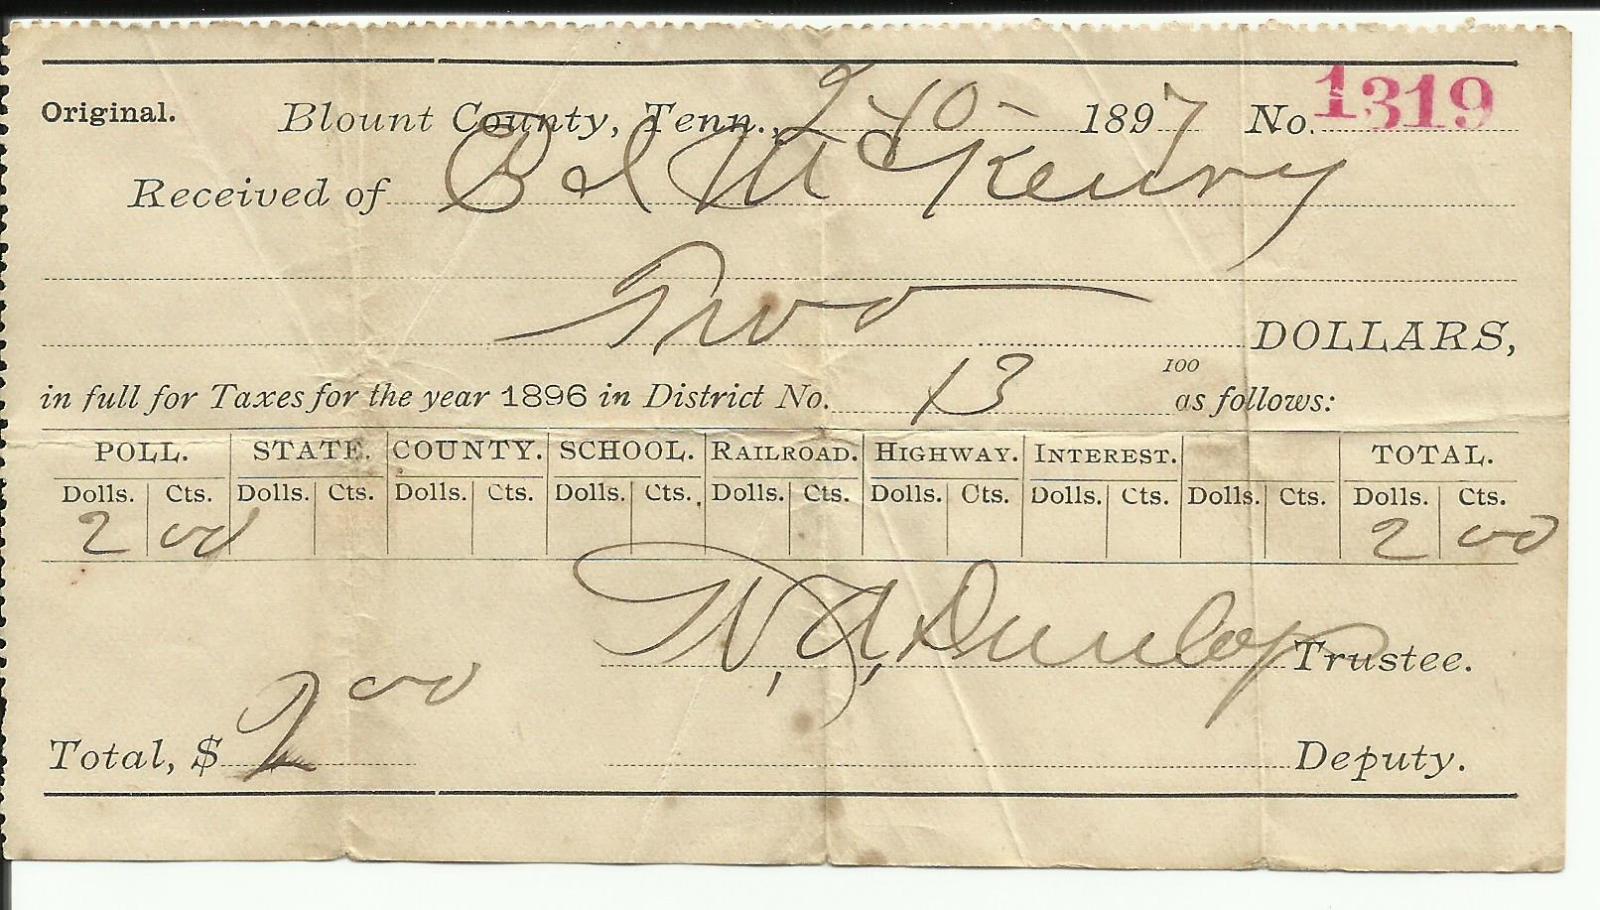 Original. Blount County, Tenn., 2/10 - 1897 No. 1319
Received of Bel McKenry
Two DOLLARS,
100
in full for Taxes for the year 1896 in District No. 13 as follows:
POLL. STATE. COUNTY. SCHOOL. RAILROAD. HIGHWAY. INTEREST. TOTAL.
Dolls. Cts. Dolls. Cts. Dolls. Cts. Dolls. Cts. Dolls. Cts. Dolls. Cts. Dolls. Cts. Dolls. Cts. Dolls. Cts.
2 00 2 00
W. A. Dunlop Trustee.
Total, $ 2 00 Deputy.